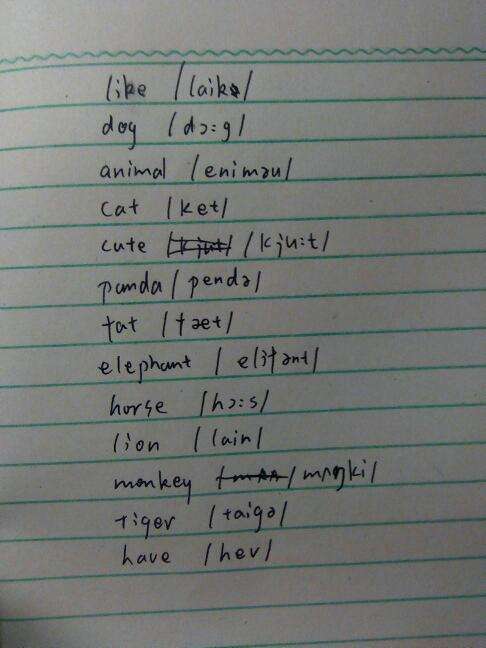 like /laik/
dog /dɔ:g/
animal /eniməu/
cat /ket/
cute /kju:t/
panda /pendə/
fat /fæt/
elephant /elifənt/
horse /hɔ:s/
lion /lain/
monkey /mʌŋki/
tiger /taigə/
have /hev/